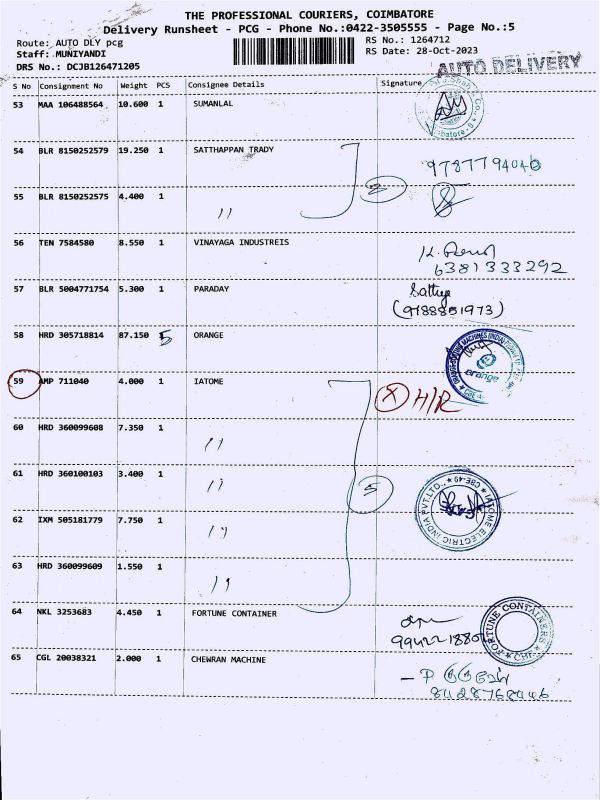 THE PROFESSIONAL COURIERS, COIMBATORE
Delivery Runsheet - PCG - Phone No.:0422-3505555 - Page No.:5
Route: AUTO DLY pcg
RS No.: 1264712
Staff: MUNIYANDI
RS Date: 28-Oct-2023
DRS No.: DCJB126471205
AUTO DELIVERY
S No Consignment No Weight PCS Consignee Details Signature
53 MAA 106488564 10.600 1 SUMANLAL
54 BLR 8150252579 19.250 1 SATTHAPPAN TRADY 9787794046
2
55 BLR 8150252575 4.400 1 //
56 TEN 7584580 8.550 1 VINAYAGA INDUSTREIS
6381333292
57 BLR 5004771754 5.300 1 PARADAY Sathya
(9188851973)
58 HRD 305718814 87.150 5 ORANGE orange
59 AMP 711040 4.000 1 IATOME X H/R
60 HRD 360099608 7.350 1 //
61 HRD 360100103 3.400 1 // 5
IATOME ELECTRIC INDIA PVT.LTD., CBE-49
62 IXM 505181779 7.750 1 //
63 HRD 360099609 1.550 1 //
64 NKL 3253683 4.450 1 FORTUNE CONTAINER FORTUNE CONTAINERS
65 CGL 20038321 2.000 1 CHEWRAN MACHINE
8428768446